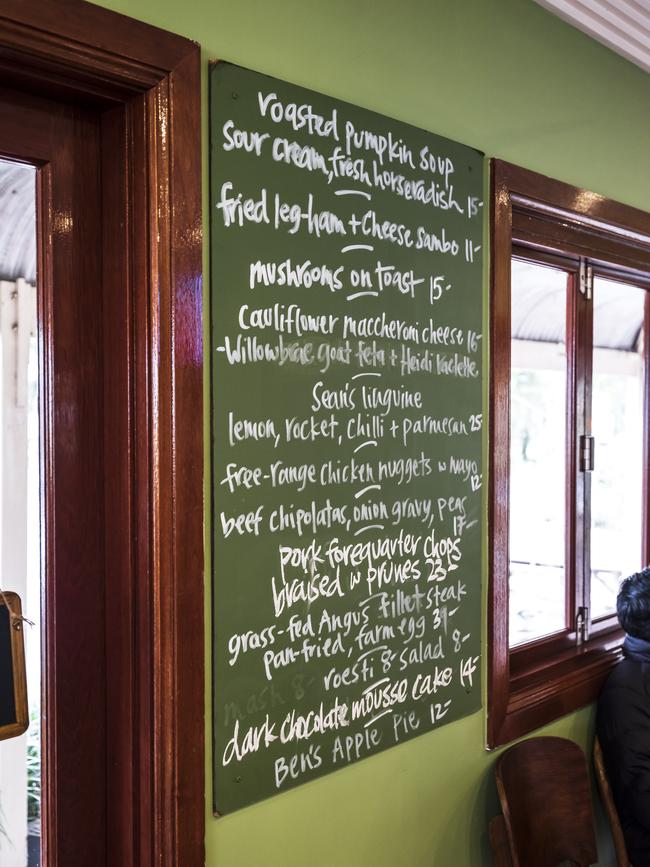 roasted pumpkin soup
sour cream, fresh horseradish 15-
fried leg-ham + cheese sambo 11-
mushrooms on toast 15-
Cauliflower maccheroni cheese 16-
-Willowbrae goat feta + Heidi Raclette
Sean's linguine
lemon, rocket, chilli + parmesan 25
free-range chicken nuggets w mayo
12
beef chipolatas, onion gravy, peas
17-
pork forequarter chops
braised w prunes 23-
grass-fed Angus fillet steak
pan-fried, farm egg 39-
roesti 8- salad 8-
mash 8-
dark chocolate mousse cake 14-
Ben's Apple Pie 12-